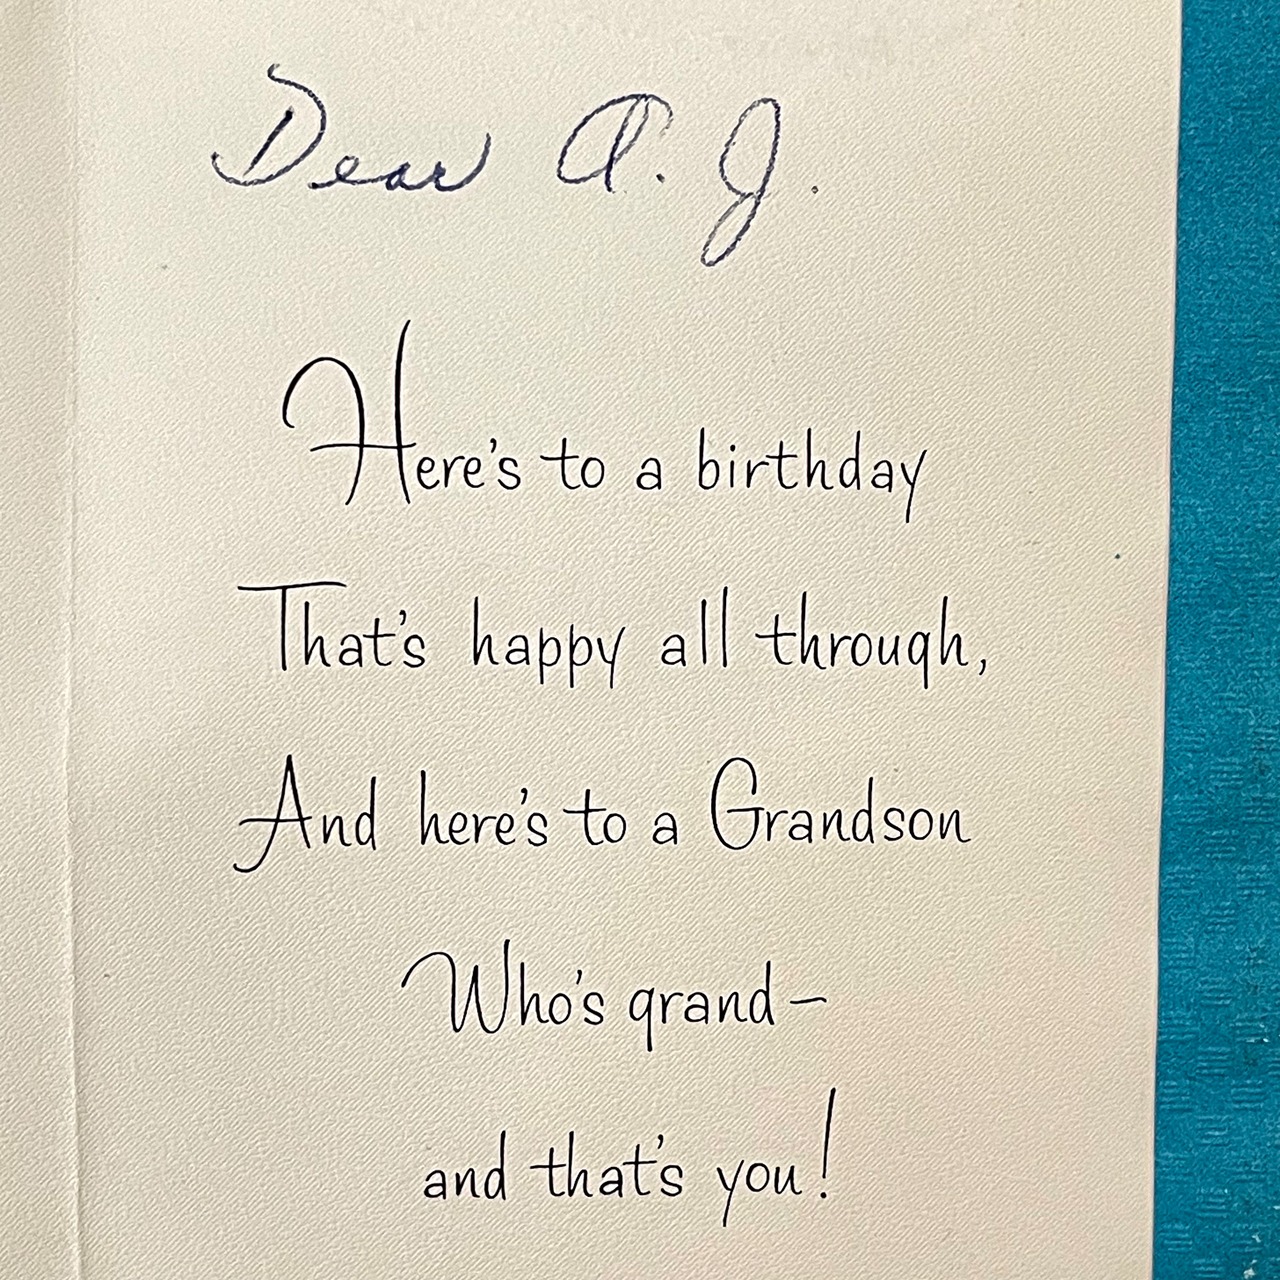 Dear A. J.
Here's to a birthday
That's happy all through,
And here's to a Grandson
Who's grand—
and that's you!